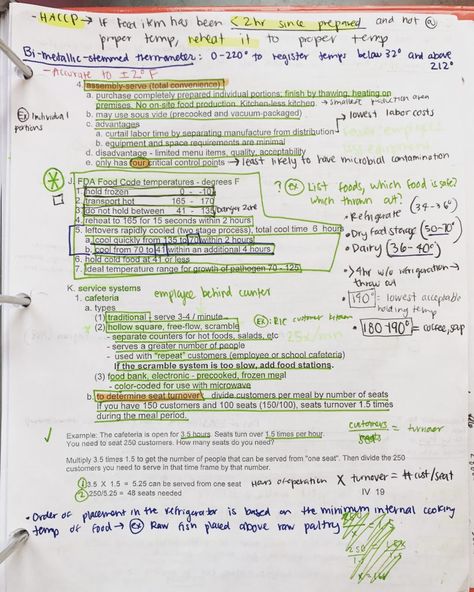 - HACCP → If food item has been < 2hr since prepared and not @
proper temp, reheat it to proper temp
Bi-metallic-stemmed thermometer: 0-220° to register temps below 32° and above
212°
- Accurate to ± 2° F
4. assembly-serve (total convenience)
a. purchase completely prepared individual portions; finish by thawing, heating on
premises. No on-site food production. Kitchen-less kitchen → smallest production area
Ex individual
portions
b. may use sous vide (precooked and vacuum-packaged)
c. advantages
lowest labor costs
a. curtail labor time by separating manufacture from distribution
b. equipment and space requirements are minimal
d. disadvantage - limited menu items, quality, acceptability
e. only has four critical control points → least likely to have microbial contamination
J. FDA Food Code temperatures - degrees F
1. hold frozen 0 - -10
2. transport hot 165 - 170
3. do not hold between 41 - 135 Danger zone
4. reheat to 165 for 15 seconds within 2 hours
5. leftovers rapidly cooled (two stage process), total cool time 6 hours
a. cool quickly from 135 to 70 within 2 hours
b. cool from 70 to 41 within an additional 4 hours
6. hold cold food at 41 or less
7. ideal temperature range for growth of pathogen 70 - 125
? Ex List foods, which food is safe?
which thrown out?
• Refrigerate (34-36°)
• Dry food storage (50-70°)
• Dairy (36-40°)
• >4hr w/o refrigeration →
throw out
• 140° = lowest acceptable
holding temp
• 180-190° = coffee, soup
K. service systems
1. cafeteria employee behind counter
a. types
(1) traditional - serve 3-4 / minute
(2) hollow square, free-flow, scramble
- separate counters for hot foods, salads, etc
- serves a greater number of people
- used with "repeat" customers (employee or school cafeteria)
If the scramble system is too slow, add food stations.
(3) food bank, electronic - precooked, frozen meal
- color-coded for use with microwave
b. to determine seat turnover: divide customers per meal by number of seats
If you have 150 customers and 100 seats (150/100), seats turnover 1.5 times
during the meal period.
customers = turnover
seats
Example: The cafeteria is open for 3.5 hours. Seats turn over 1.5 times per hour.
You need to seat 250 customers. How many seats do you need?
Multiply 3.5 times 1.5 to get the number of people that can be served from "one seat". Then divide the 250
customers you need to serve in that time frame by that number.
1 3.5 X 1.5 = 5.25 can be served from one seat
Hours of operation X turnover = # cust/seat
2 250/5.25 = 48 seats needed
IV 19
• Order of placement in the refrigerator is based on the minimum internal cooking
temp of food → Ex Raw fish placed above raw poultry